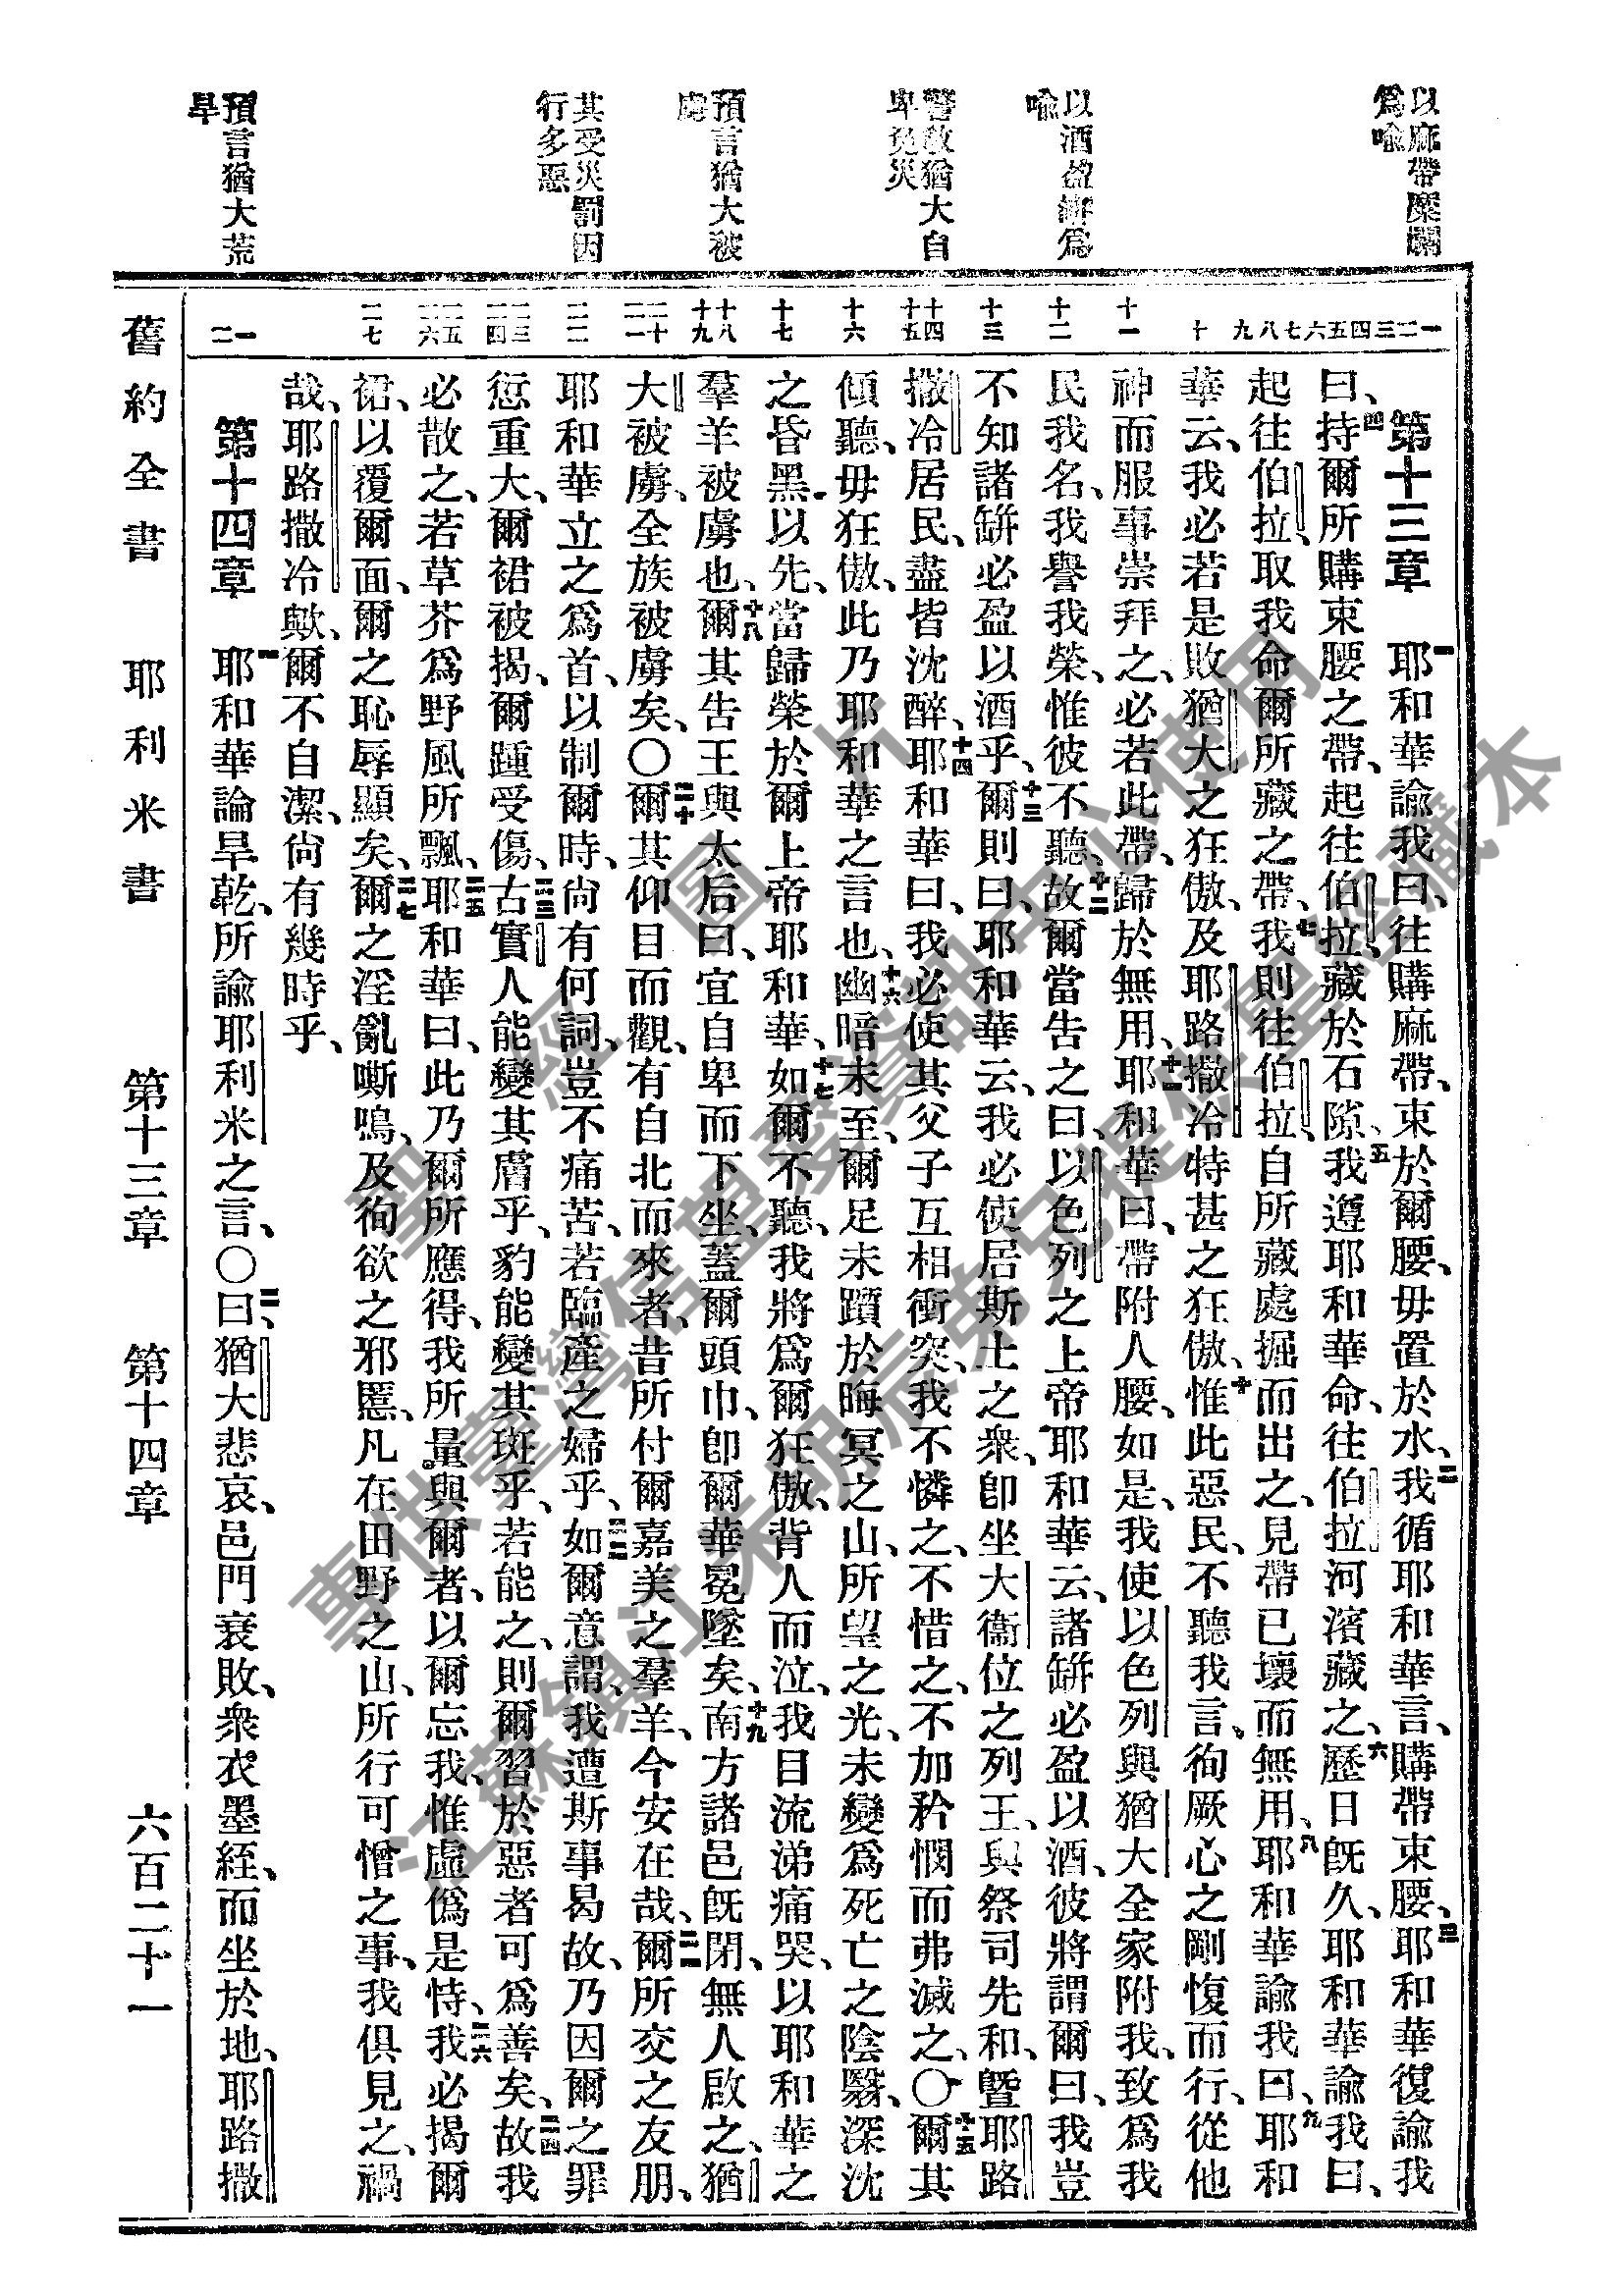 以麻帶糜爛
爲喻
以酒盈缾爲
喻
警敎猶大自
卑免災
預言猶大被
虜
其受災罰因
行多惡
預言猶大荒
旱
一二三四五六七八九 十 十一 十二 十三 十四 十五 十六 十七 十八 十九 二十 二一 二二 二三 二四 二五 二六 二七 一二
第十三章 一耶和華諭我曰、往購麻帶、束於爾腰、毋置於水、二我循耶和華言、購帶束腰、三耶和華復諭我
曰、四持爾所購束腰之帶、起往伯拉、藏於石隙、五我遵耶和華命、往伯拉河濱藏之、六歷日旣久、耶和華諭我曰、
起往伯拉、取我命爾所藏之帶、七我則往伯拉、自所藏處掘而出之、見帶已壞而無用、八耶和華諭我曰、九耶和
華云、我必若是敗猶大之狂傲、及耶路撒冷特甚之狂傲、十惟此惡民、不聽我言、徇厥心之剛愎而行、從他
神而服事崇拜之、必若此帶、歸於無用、十一耶和華曰、帶附人腰、如是、我使以色列與猶大全家附我、致爲我
民我名、我譽我榮、惟彼不聽、十二故爾當告之曰、以色列之上帝耶和華云、諸缾必盈以酒、彼將謂爾曰、我豈
不知諸缾必盈以酒乎、十三爾則曰、耶和華云、我必使居斯土之衆、卽坐大衞位之列王、與祭司先和、曁耶路
撒冷居民、盡皆沈醉、十四耶和華曰、我必使其父子互相衝突、我不憐之、不惜之、不加矜憫而弗滅之、〇十五爾其
傾聽、毋狂傲、此乃耶和華之言也、十六幽暗未至、爾足未躓於晦冥之山、所望之光、未變爲死亡之陰翳、深沈
之昏黑、以先、當歸榮於爾上帝耶和華、十七如爾不聽、我將爲爾狂傲、背人而泣、我目流涕痛哭、以耶和華之
羣羊被虜也、十八爾其告王與太后曰、宜自卑而下坐、蓋爾頭巾、卽爾華冕墜矣、十九南方諸邑旣閉、無人啟之、猶
大被虜、全族被虜矣、〇二十爾其仰目而觀、有自北而來者、昔所付爾嘉美之羣羊、今安在哉、二一爾所交之友朋、
耶和華立之爲首、以制爾時、尙有何詞、豈不痛苦、若臨產之婦乎、二二如爾意謂、我遭斯事曷故、乃因爾之罪
愆重大、爾裙被揭、爾踵受傷、二三古實人能變其膚乎、豹能變其斑乎、若能之、則爾習於惡者可爲善矣、二四故我
必散之、若草芥爲野風所飄、二五耶和華曰、此乃爾所應得、我所量與爾者、以爾忘我、惟虛僞是恃、二六我必揭爾
裙、以覆爾面、爾之恥辱顯矣、二七爾之淫亂嘶鳴、及徇欲之邪慝、凡在田野之山、所行可憎之事、我俱見之、禍
哉、耶路撒冷歟、爾不自潔、尙有幾時乎、
第十四章 一耶和華論旱乾、所諭耶利米之言、〇二曰、猶大悲哀、邑門衰敗、衆衣墨絰、而坐於地、耶路撒
舊約全書 耶利米書 第十三章 第十四章 六百二十一
聖經圖片
專供臺灣信望愛資訊中心使用
江蘇鎮江朱明辰弟兄提供聖經藏本